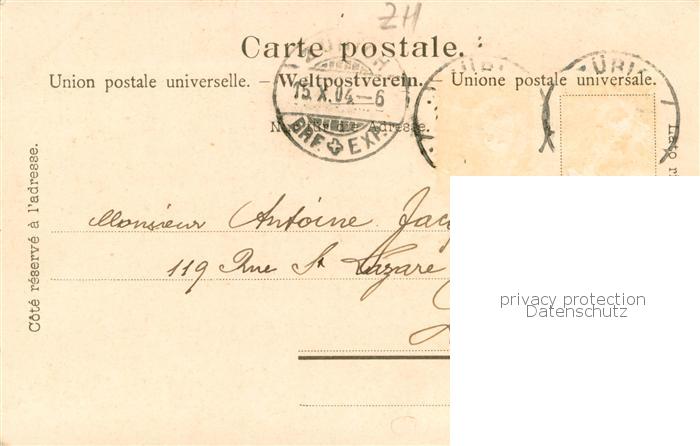 ZH
Carte postale.
Union postale universelle. – Weltpostverein. – Unione postale universale.
ZÜRICH
15.X.04–6
BRF. EXP.
ZÜRI
ZÜRI
Nur für die Adresse.
Côté réservé à l'adresse.
Lato r
Monsieur Antoine Jacq
119 Rue St Lazare
privacy protection
Datenschutz